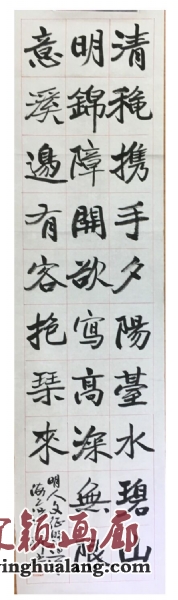 清穐携手夕陽臺水碧山
明錦障開欲寫高深無限
意溪邊有客抱琴來
明人文征明
颖画廊
yinghualang.com